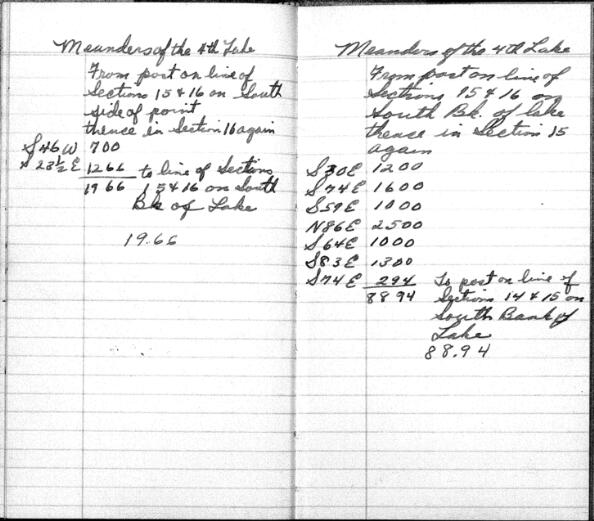 Meanders of the 4th Lake
From post on line of
Sections 15 & 16 on South
side of point
thence in Section 16 again
S46W 700
S 23 1/2 E 1266 to line of Sections
1966 15 & 16 on South
Bk of Lake
19.66
Meanders of the 4th Lake
From post on line of
Sections 15 & 16 on
South Bk. of lake
thence in Section 15
again
S30E 1200
S74E 1600
S59E 1000
N86E 2500
S64E 1000
S83E 1300
S74E 294 To post on line of
8894 Sections 14 & 15 on
South Bank of
Lake
88.94